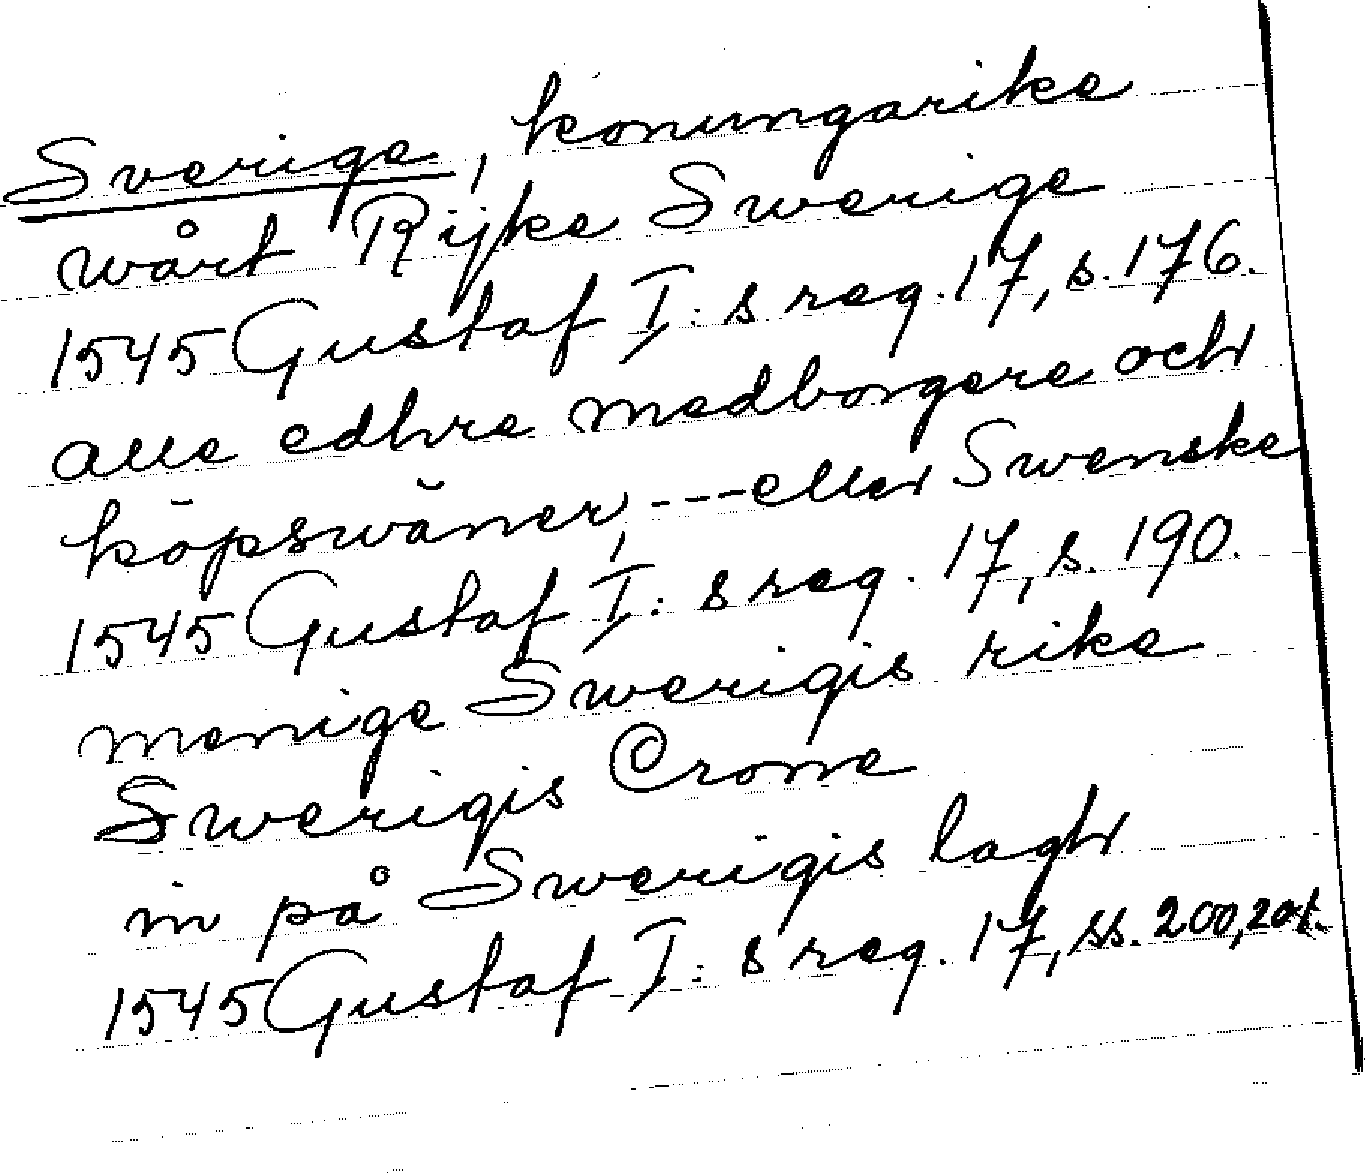 Sverige, konungarike
wårt Rijke Swerige
1545 Gustaf I:s reg. 17, s. 176.
alle edhre medborgere och
köpswäner, --- eller Swenske
1545 Gustaf I:s reg. 17, s. 190.
menige Swerigis rike
Swerigis Crone
in på Swerigis lagh
1545 Gustaf I:s reg. 17, ss. 200,